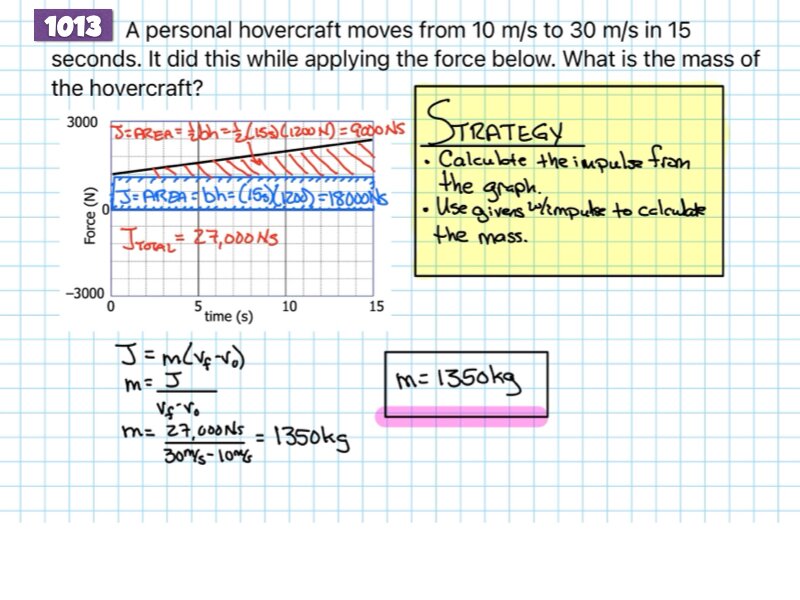 1013 A personal hovercraft moves from 10 m/s to 30 m/s in 15
seconds. It did this while applying the force below. What is the mass of
the hovercraft?
3000
J=AREA=½bh=½(15s)(1200N)=9000NS
J=AREA=bh=(15s)(1200)=18000NS
Force (N)
0
JTOTAL = 27,000NS
−3000
0 5 10 15
time (s)
STRATEGY
• Calculate the impulse from
the graph.
• Use givens w/impulse to calculate
the mass.
J = m(vf-v0)
m= J
vf-v0
m= 27,000NS = 1350kg
30m/s-10m/s
m= 1350kg